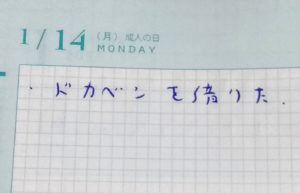 1/14 (月) 成人の日
MONDAY
・ドカベンを借りた.